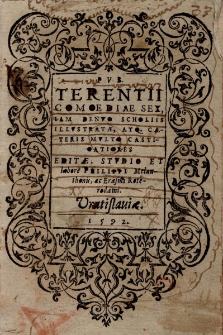 PVB.
TERENTII
COMOEDIAE SEX,
IAM DENVO SCHOLIIS
ILLVSTRATÆ, ATQ. CÆ-
TERIS MVLTO CASTI-
GATIORES
EDITÆ. STVDIO ET
labore PHILIPPI Melan-
thonis, ac Erasmi Rote-
rodami.
Vratislauiæ.
1592.